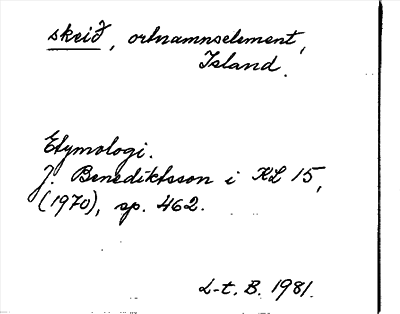 skeið, ortnamnselement,
Island.
Etymologi.
J. Benediktsson i KL 15,
(1970), sp. 462.
L-t. B. 1981.